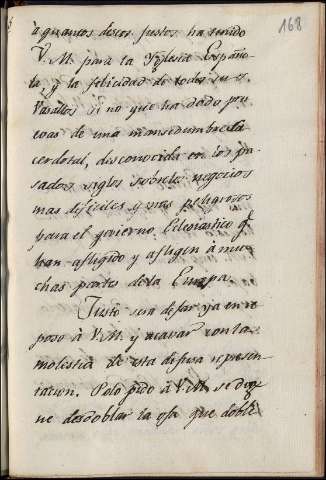 168
à quantos deseos justos ha tenido
V. M. para la Yglesia Españo-
la, y la felicidad de todos sus
Vasallos sino que ha dado pru
evas de una mansedumbre sa
cerdotal, desconocida en los pa
sados siglos sobre los negocios
mas dificiles y mas peligrosos
para el govierno Eclesiastico qe
han afligido y afligen à mu
chas partes de la Europa.
Justo sera dejar ya en re
poso à V. M. y acavar con la
molestia de esta difusa represen-
tacion. Solo pido à V. M. se dig
ne desdoblar la oja que doblè